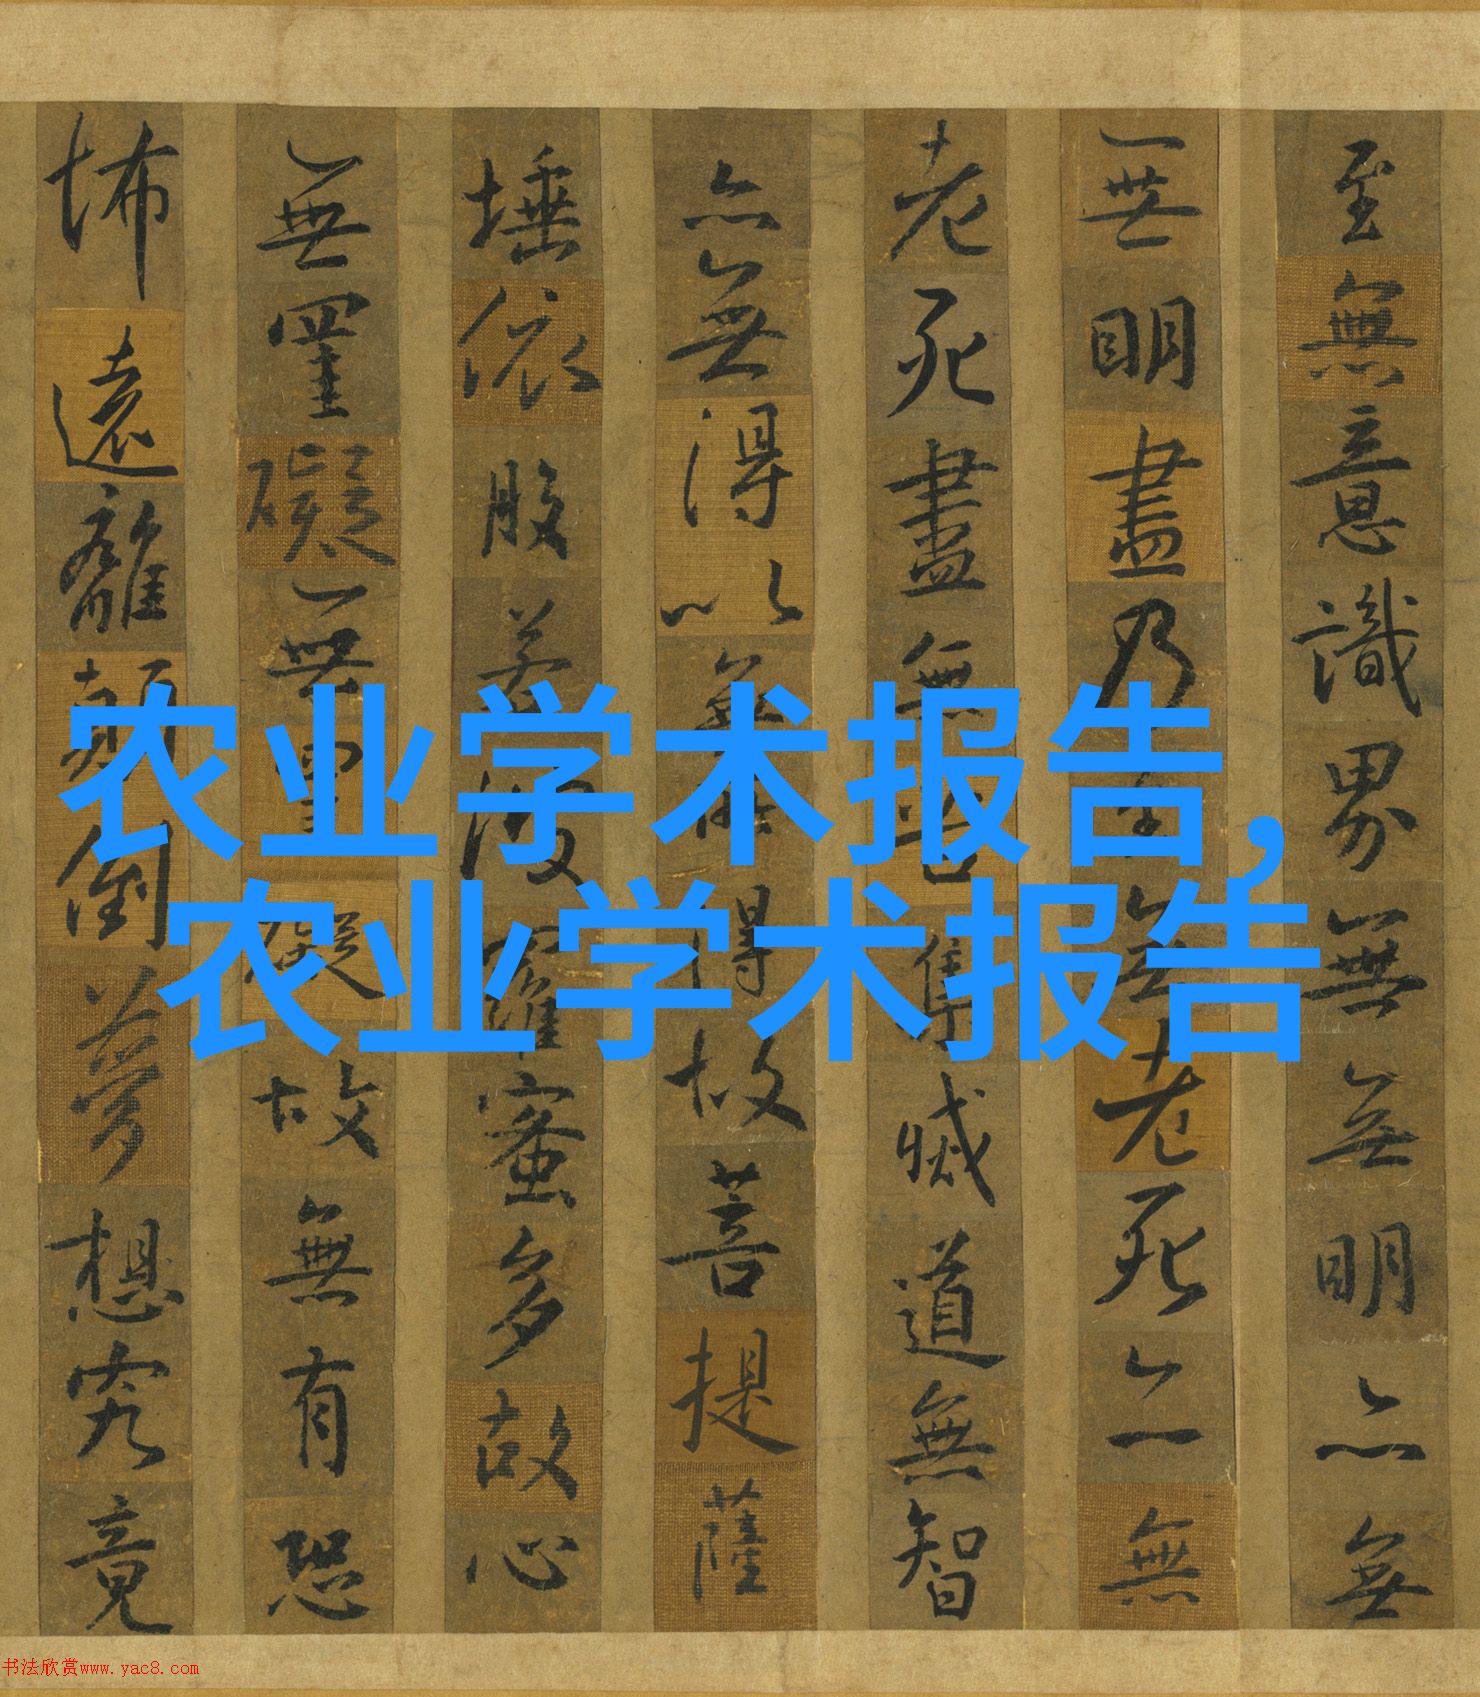 至無意識界無無明亦無
無明盡乃至無老死亦無
老死盡無苦集滅道無智
亦無得以無所得故菩提薩
埵依般若波羅蜜多故心
無罣礙無罣礙故無有恐
怖遠離顛倒夢想究竟
农业学术报告,
农业学术报告
书法欣赏www.yac8.com